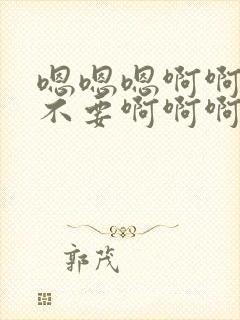 嗯嗯嗯啊啊
不要啊啊啊
郭茂